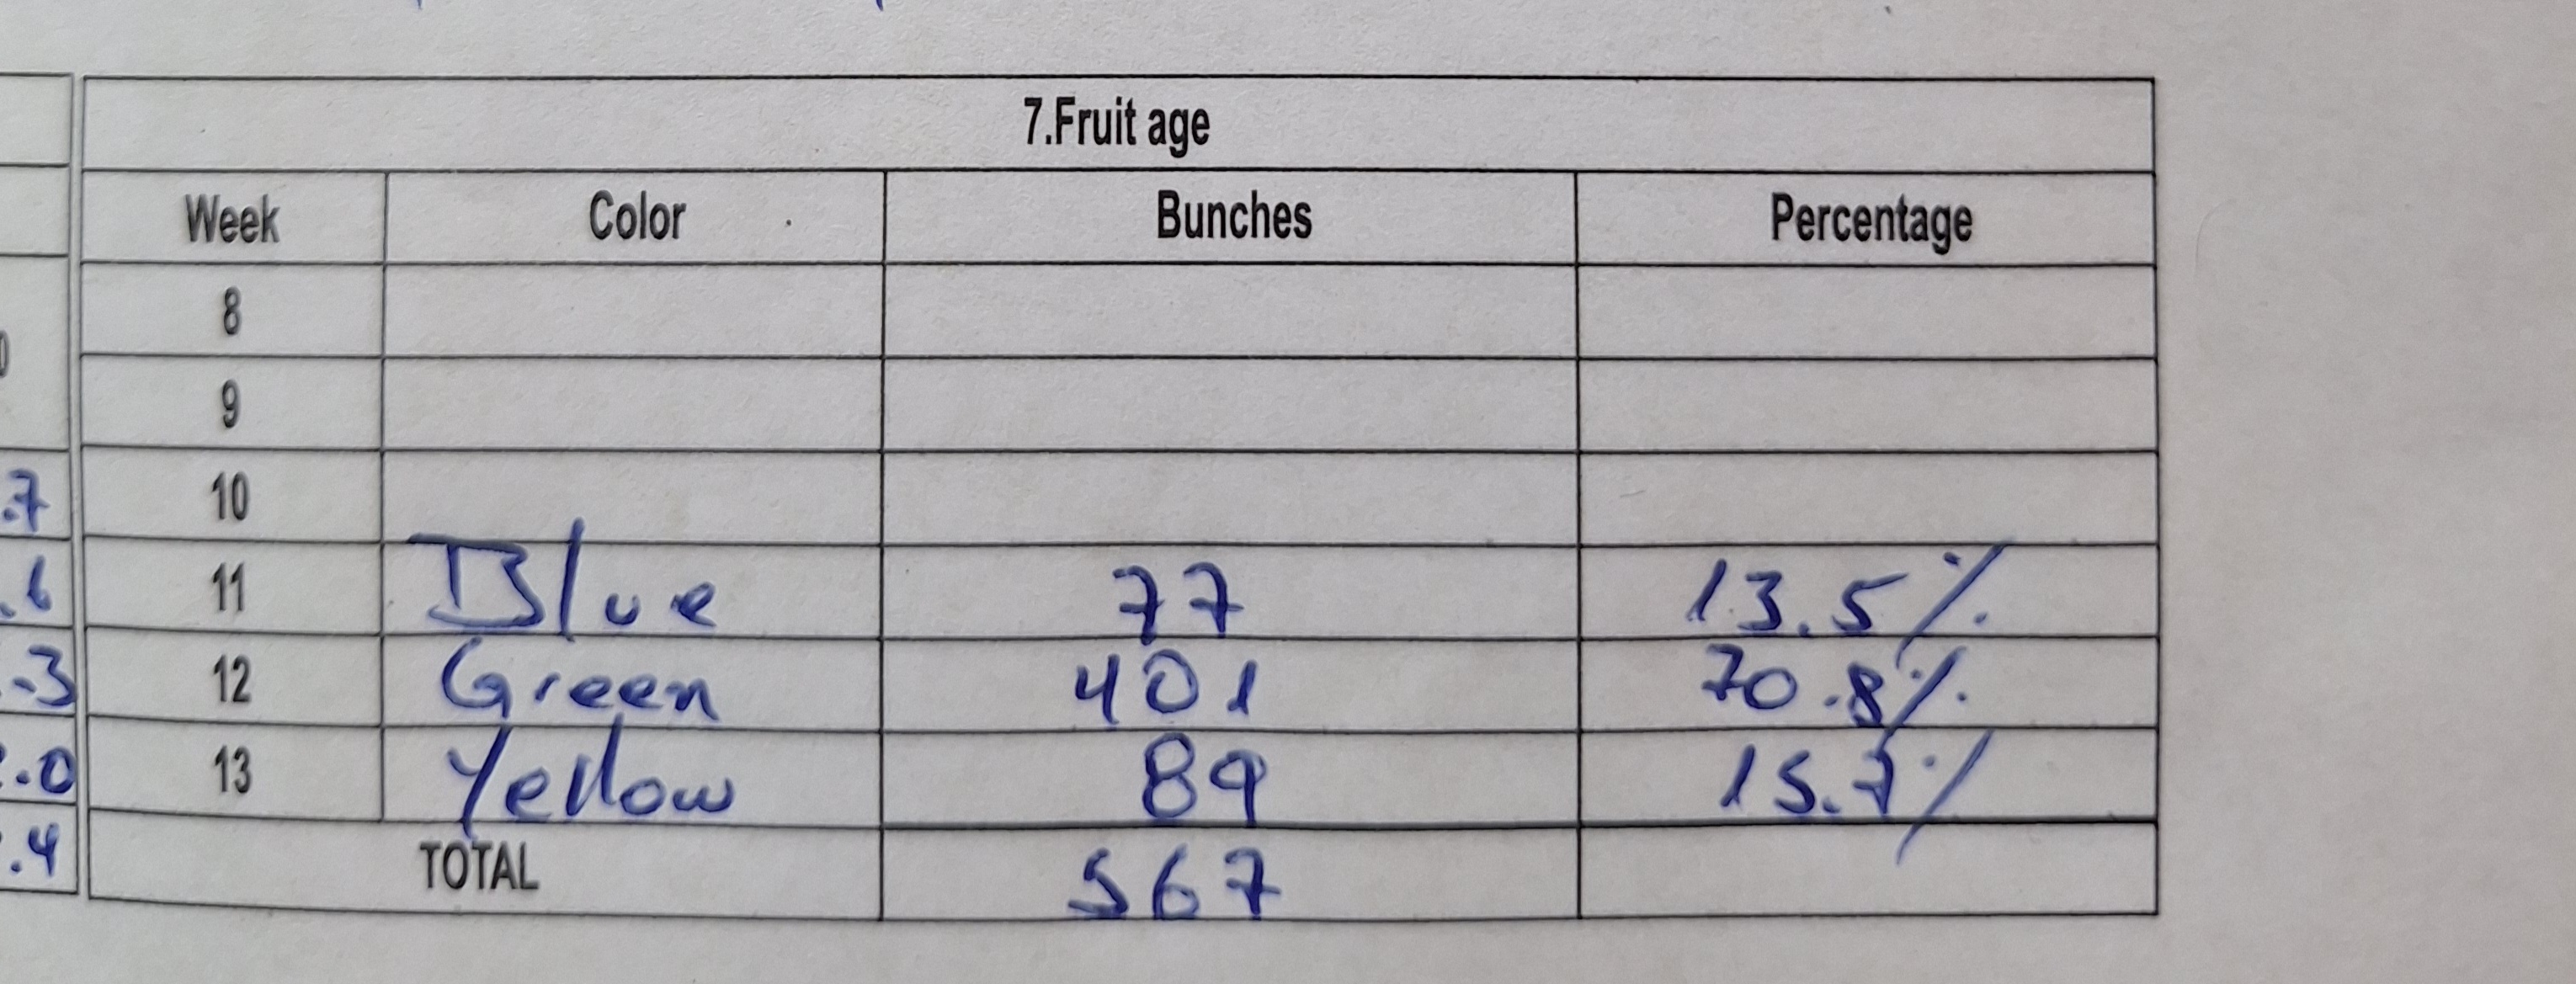 7.Fruit age
Week Color Bunches Percentage
8
9
10
.7
11 Blue 77 13.5%
.6
12 Green 401 70.8%
.3
13 Yellow 89 15.7%
.0
TOTAL 567
.4